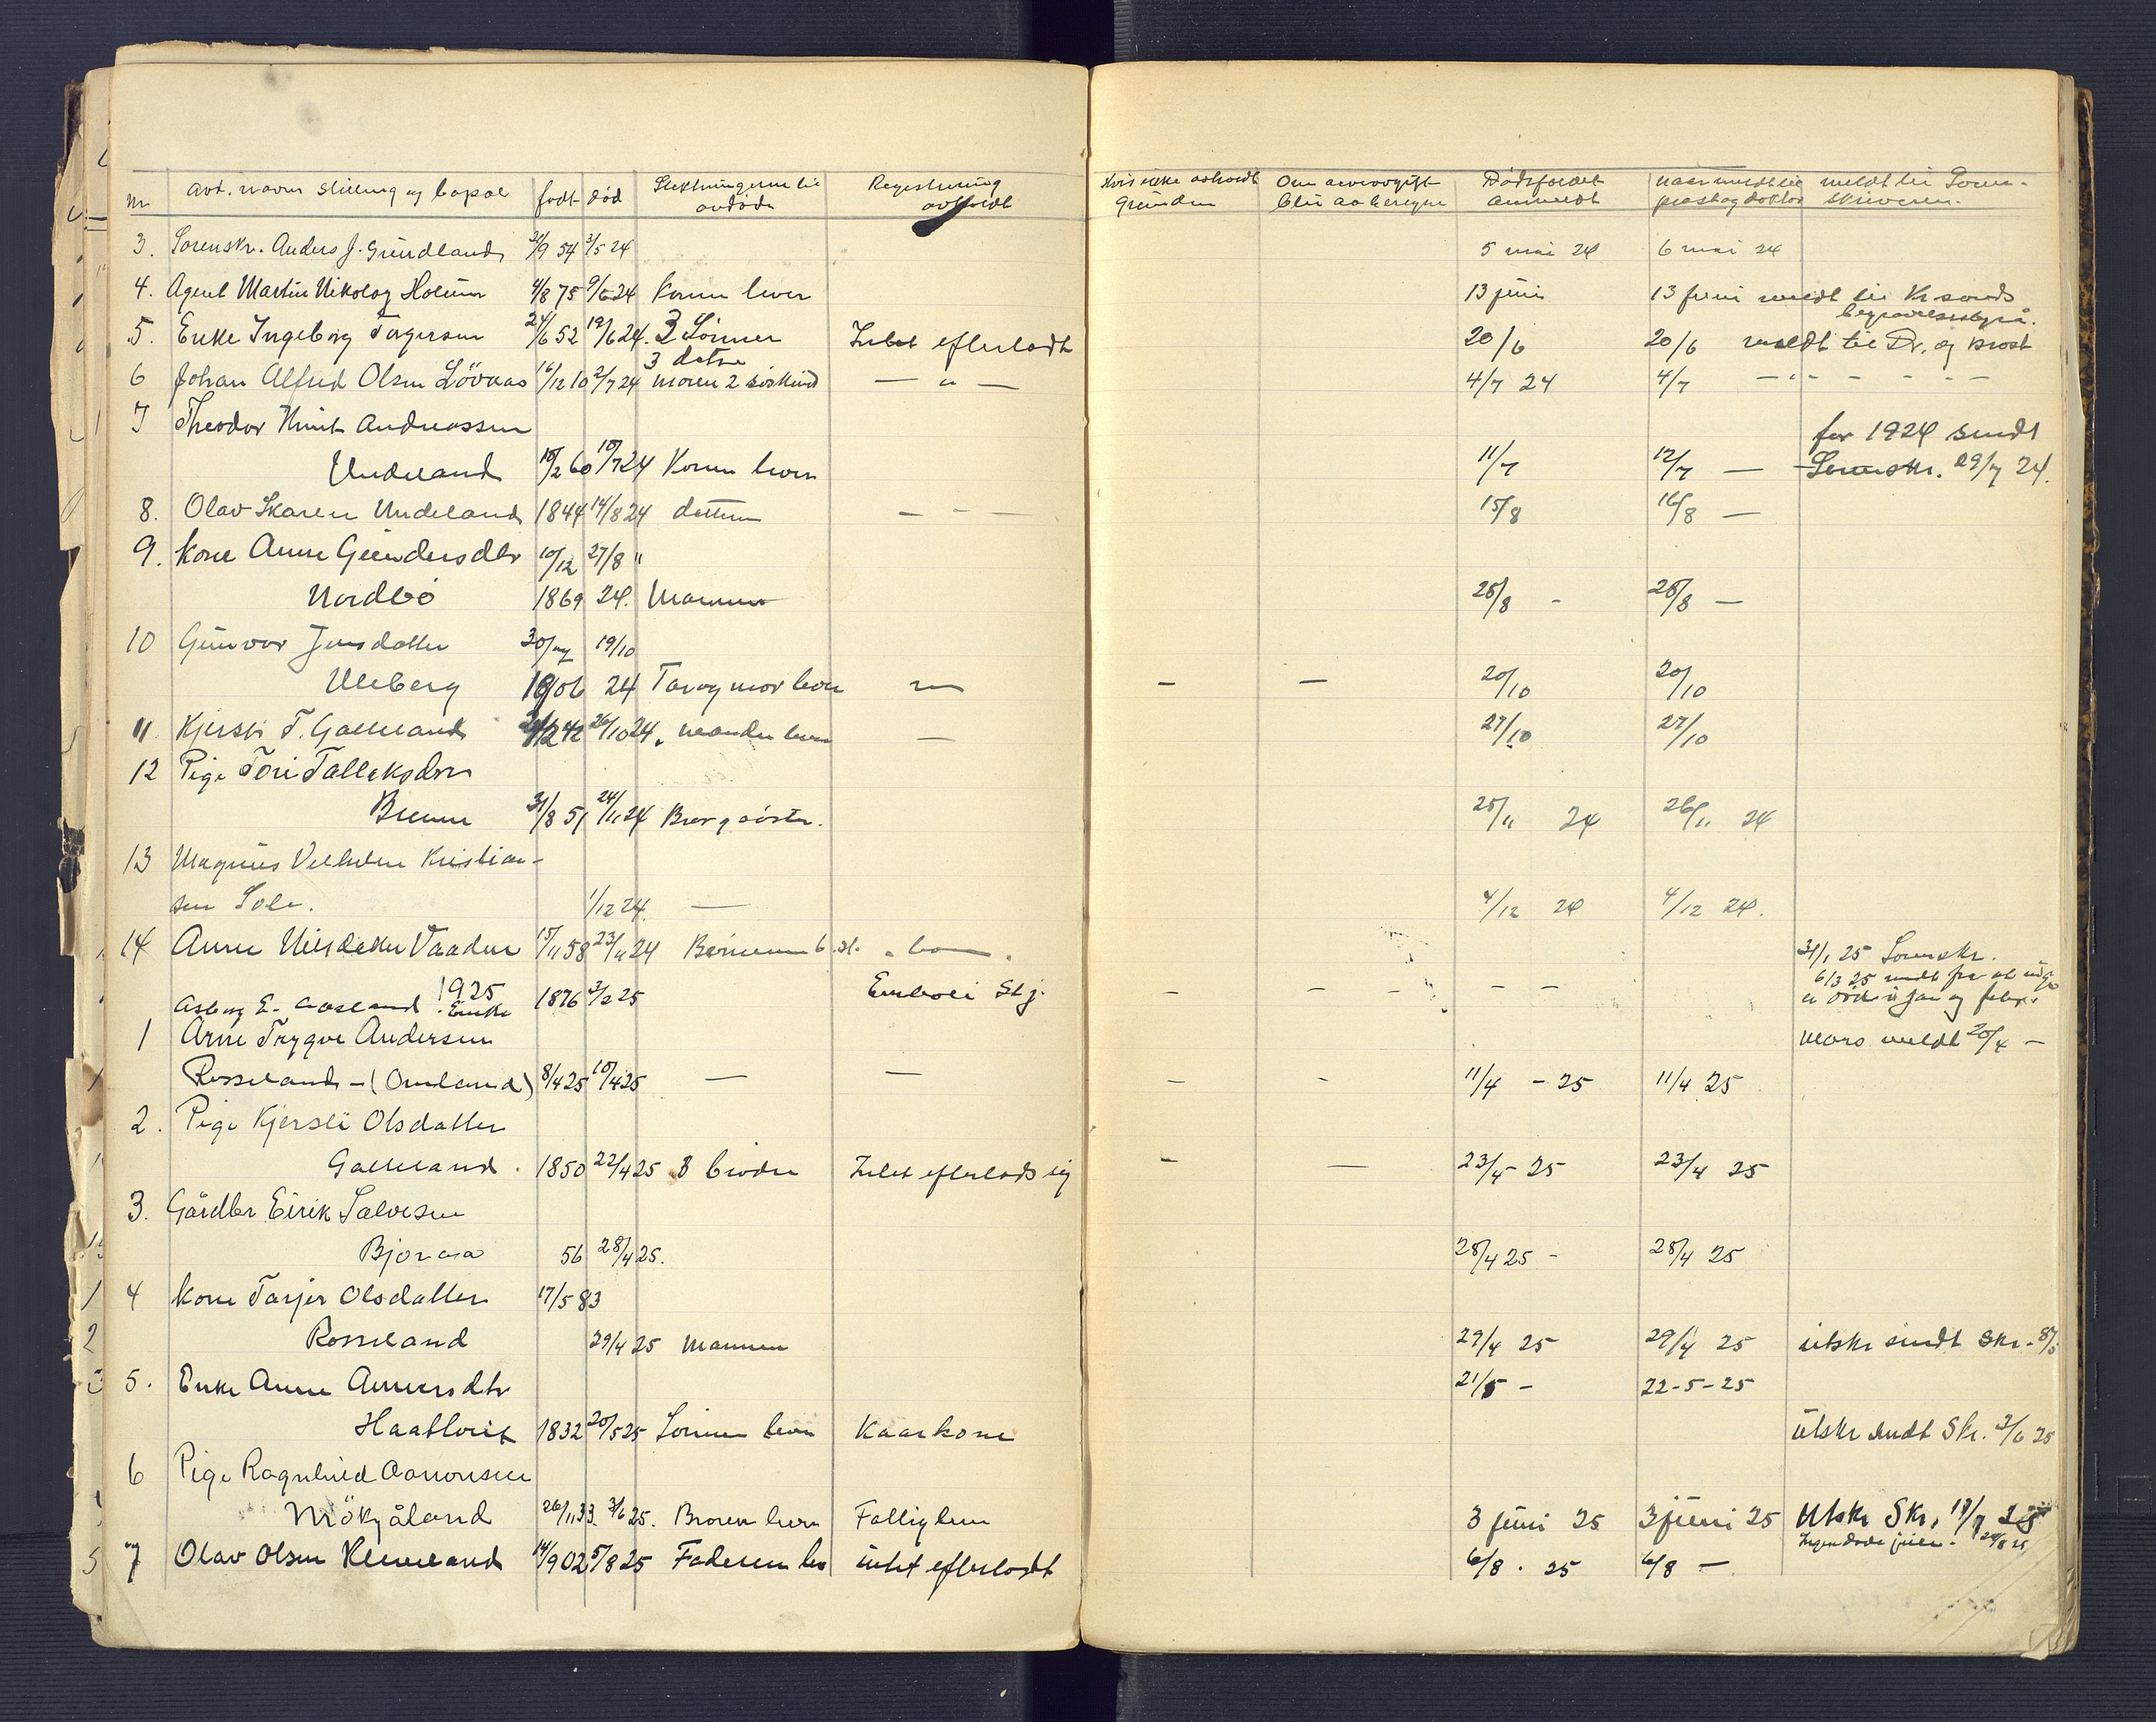 Nr. avd. navn stilling og bopæl født død Slektningerne til avdøde Registrering avholdt Hvis ikke avholdt Grunden Om arveavgift blir at beregne Dødsfaldet anmeldt naar meldt til prost og doktor meldt til Soren-skriveren.
3. Sorenskr. Anders J. Grundland 21/9 54 3/5 24 5 mai 24 6 mai 24
4. Agent Martin Nikolay Holum 4/8 75 9/6 24 Konen lever 13 juni 13 juni meldt til Krsands
begravelsesbyrå.
5. Enke Ingeborg Torgersen 24/6 52 19/6 24. 3 Sönner Intet efterladt 20/6 20/6 meldt til Dr. og Prost
3 døtre
6 Johan Alfred Olsen Lövaas 16/12 10 2/7 24 moren 2 söskend — " — 4/7 24 4/7 — " — — —
7 Theodor Knut Andreassen for 1924 sendt
Undeland 18/2 60 10/7 24 Konen lever 11/7 12/7 — Sorenskr. 29/7 24.
8. Olav Skaren Undeland 1844 14/8 24 datteren — — — 15/8 16/8 —
9. Kone Anne Gundersdtr 10/12 27/8 "
Nordbö 1869 24. Mannen 28/8 - 28/8 —
10 Gunvor Jensdatter 30/aug 19/10
Uleberg 1906 24 Far og mor lever — — — 20/10 20/10
11 Kjersti T. Galteland 12 42 26/10 24. manden lever — 27/10 27/10
12 Pige Tori Tallaksdtr
31/8 51 24/11 24 Bror og söster. 25/11 24 26/11 24
13 Magnus Vilhelm Kristian-
sen Sole. 1/12 24. — 4/12 24 4/12 24.
14 Anne Nilsdatter Vaaden 15/11 58 23/11 24 31/1 25 Sorenskr.
1925 6/3 25 meldt fra at ingen
Asborg E. Aasland Enke 1876 3/2 25 Enkebo Stj. — — — — — er död i jan og februar
1 Arne Trygve Andersen Mars meldt 20/4 —
Rosseland — (Omland) 8/4 25 10/4 25 — — — - 11/4 - 25 11/4 25
2. Pige Kjersti Olsdatter
Galteland. 1850 22/4 25 3 brödre Intet efterlads sig - — 23/4 - 25 23/4 25
3. Gårdbr Eirik Salvesen
Bjoraa 56 28/4 25. 28/4 25 - 28/4 25
4 Kone Tarjer Olsdatter 17/5 83
Rosseland 29/4 25 Mannen 29/4 25 29/4 25 utskr sendt Skr. 8/5
5. Enke Anne Annersdtr 21/5 - 22-5-25
1832 20/5 25 Sönnen lever Kaarkone utskr sendt Skr. 3/6 25
6 Pige Ragnhild Aanonsen
Mökjåland 26/11 33. 3/6 25. Broren lever Fattiglem 3 juni 25 3 juni 25 Utskr Skr. 17/7 25
Ingen döde juli.
7 Olav Olsen Kleveland 14/9 02 5/8 25 Faderen lev intet efterladt 6/8. 25 6/8 —